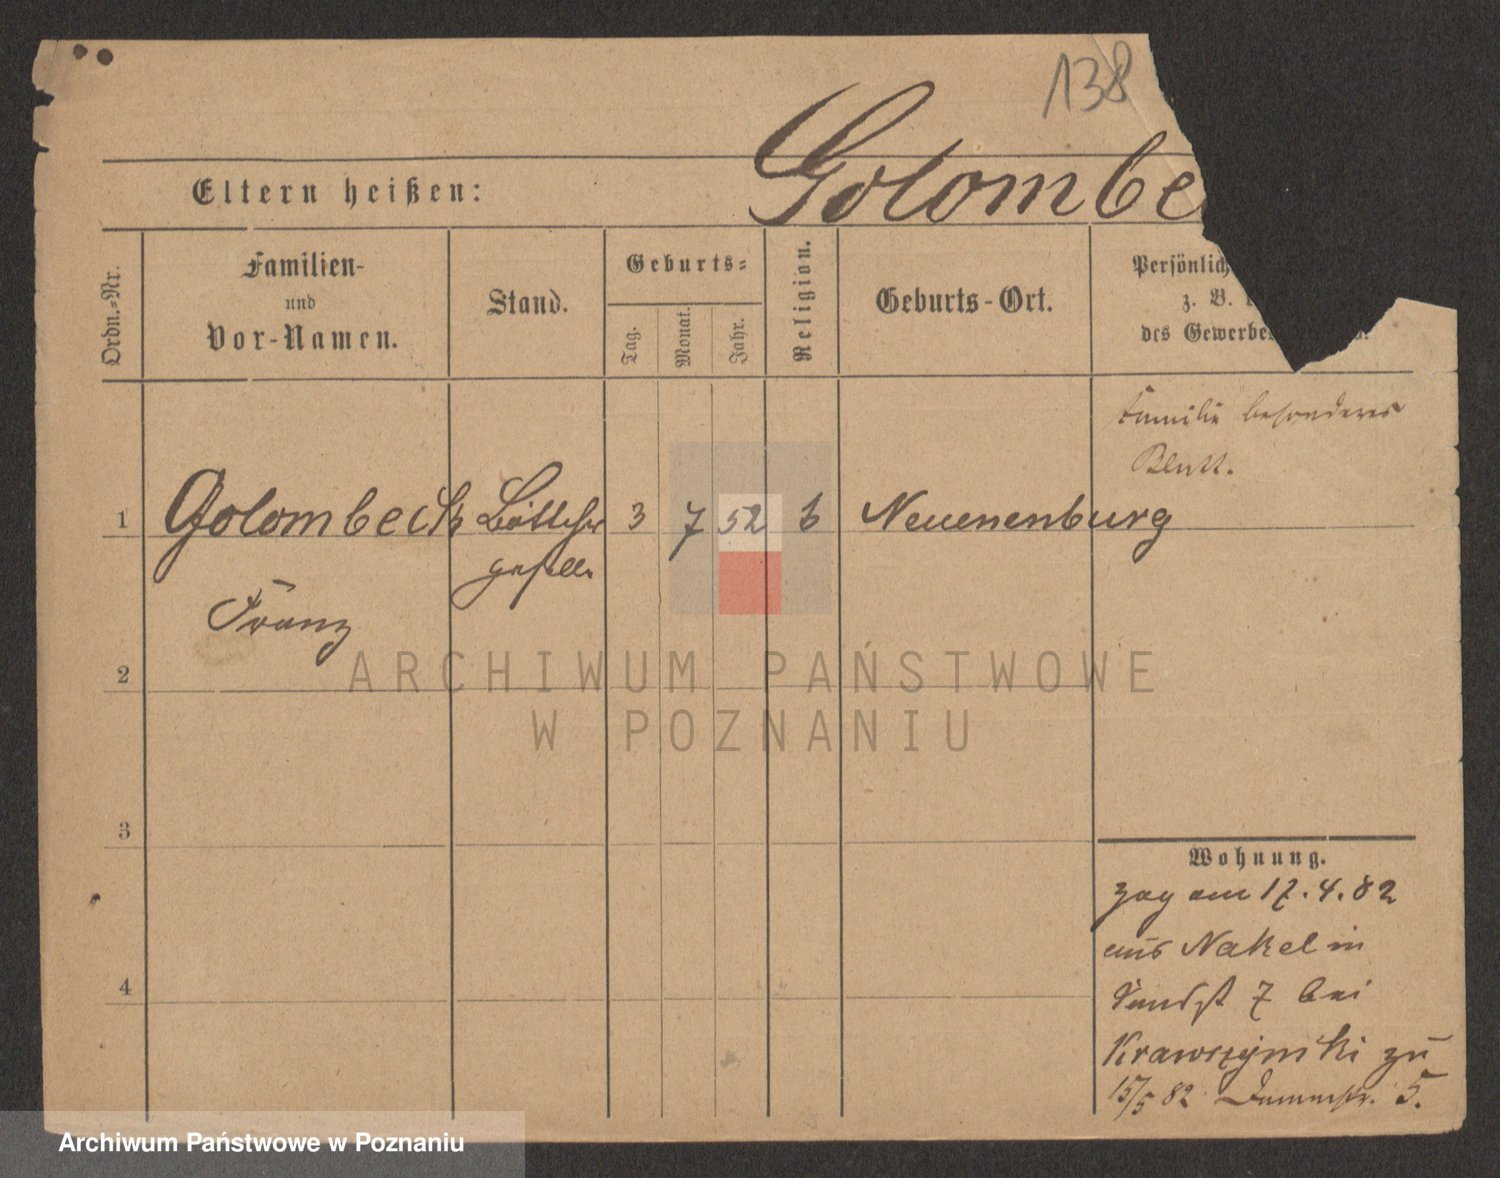 138
Golombe
Eltern heißen:
Ordn.-Nr.
Familien-
und
Vor-Namen.
Stand.
Geburts-
Tag.
Monat.
Jahr.
Religion.
Geburts-Ort.
Persönlich
z. B.
des Gewerbe
Familie besonderes
Blatt.
1 Golombeck Böttcher 3 7 52 k Neuenenburg
geselle
Franz
2
3
4
Wohnung.
zog am 17.4.82
aus Nakel in
7 bei
Krawczynski zu
15/5 82 Dammstr. 5.
ARCHIWUM PAŃSTWOWE
W POZNANIU
Archiwum Państwowe w Poznaniu